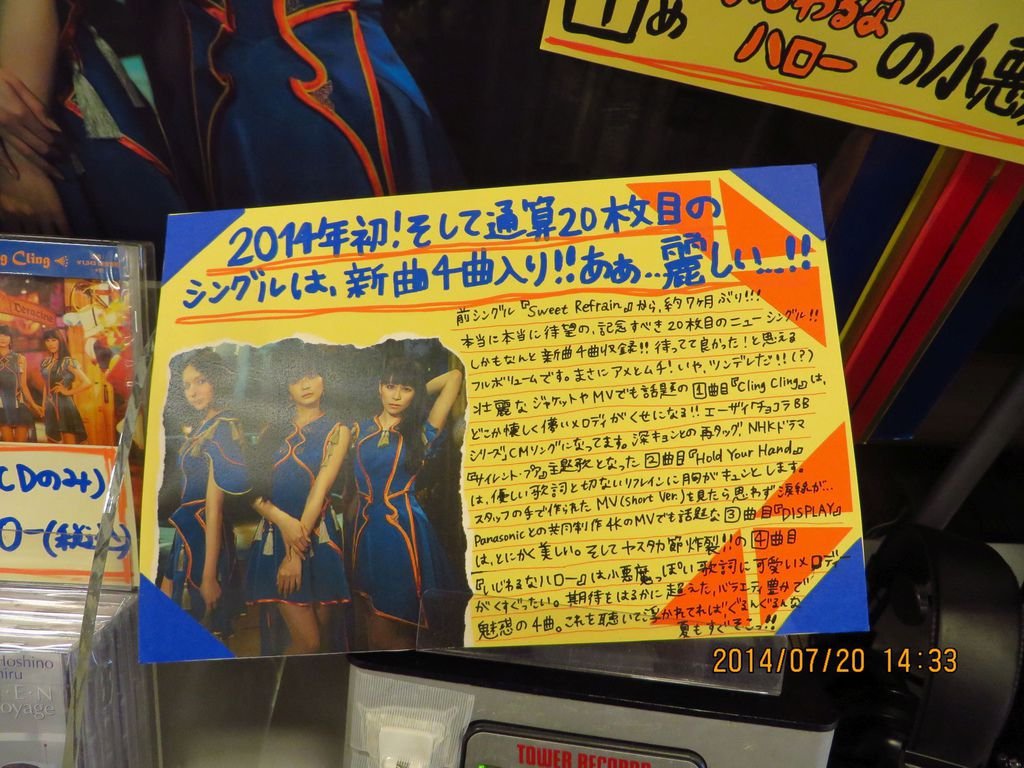 1 め
いじわるな
ハロー の小悪
2014年初!そして通算20枚目の
シングルは、新曲4曲入り!!あぁ…麗しい…!!
前シングル『Sweet Refrain』から、約7ヶ月ぶり!!!
本当に本当に待望の、記念すべき20枚目のニューシングル!!
しかもなんと新曲4曲収録!!待ってて良かった!と思える
フルボリュームです。まさにアメとムチ!いや、ツンデレだ!!(?)
壮麗なジャケットやMVでも話題の1曲目『Cling Cling』は、
どこか懐しく儚いメロディがくせになる!!エーザイ「チョコラBB
シリーズ」CMソングになってます。深キョンとの再タッグ!NHKドラマ
『サイレント・プア』主題歌となった2曲目『Hold Your Hand』
は、優しい歌詞と切ないリフレインに胸がキュンとします。
スタッフの手で作られたMV(Short Ver.)を見たら思わず涙線が…
Panasonicとの共同制作4KのMVでも話題な3曲目『DISPLAY』
は、とにかく美しい。そしてヤスタカ節炸裂!!の4曲目
『いじわるなハロー』は小悪魔っぽい歌詞に可愛いメロディー
がくすぐったい。期待をはるかに超えた、バラエティ豊かで
魅惑の4曲。これを聴いて浮かれてれば"ぐるんぐるん"な
夏もすぐそこっ!!
g Cling
CDのみ)
0-(税込)
Hoshino
iru
E・N
oyage
TOWER RECORDS
2014/07/20 14:33